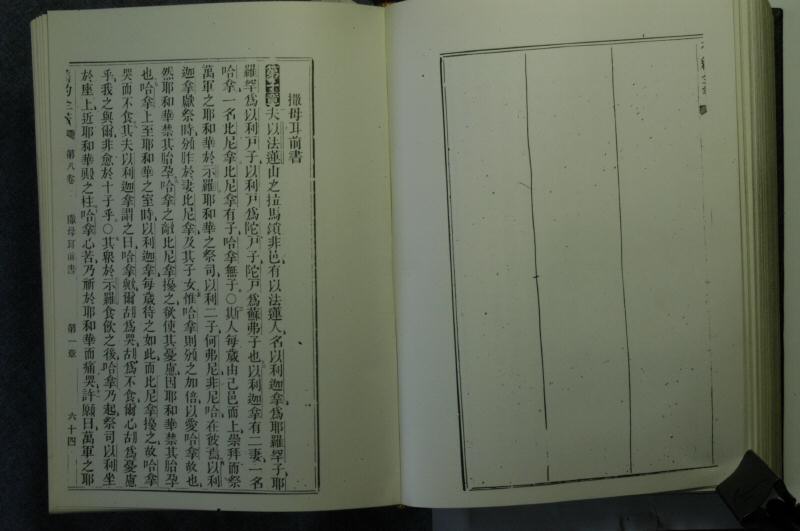 撒母耳前書
夫以法蓮山之拉馬瑣非邑有以法蓮人名以利迦拿爲耶羅罕子耶
羅罕爲以利戸子以利戸爲陀戸子陀戸爲蘇弗子也以利迦拿有二妻一名
哈拿一名比尼拿比尼拿有子哈拿無子○斯人每歲由己邑而上崇拜而祭
萬軍之耶和華於示羅耶和華之祭司以利二子何弗尼非尼哈在彼焉以利
迦拿獻祭時頒胙於妻比尼拿及其子女惟哈拿則頒之加倍以愛哈拿故也
然耶和華禁其胎孕哈拿之敵比尼拿擾之欲使其憂慮因耶和華禁其胎孕
也哈拿上至耶和華之室時以利迦拿每歲待之如此而比尼拿擾之故哈拿
哭而不食其夫以利迦拿謂之曰哈拿歟爾胡爲哭胡爲不食爾心胡爲憂慮
乎我之與爾非愈於十子乎○其眾於示羅食飲之後哈拿乃起祭司以利坐
於座上近耶和華殿之柱哈拿心苦乃祈於耶和華而痛哭許願曰萬軍之耶
第八卷 撒母耳前書 第一章 六十四